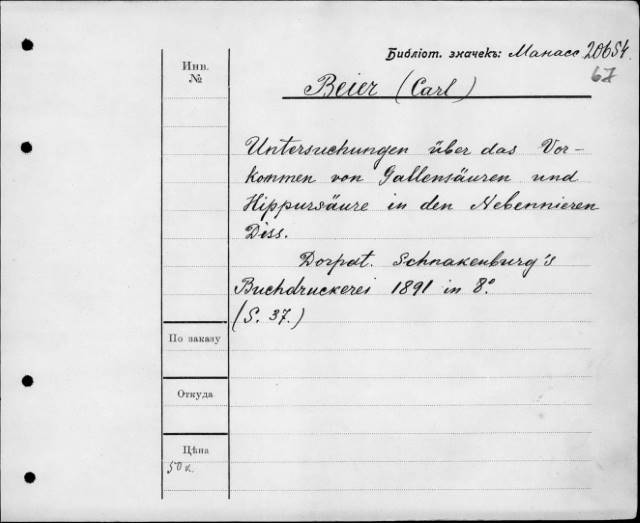 Библіот. значекъ: Манасс 20654.
67
Инв.
№
Beier (Carl)
Untersuchungen über das Vor-
kommen von Gallensäuren und
Hippursäure in den Nebennieren
Diss.
Dorpat. Schnakenburg's
Buchdruckerei 1891 in 8°.
(S. 37.)
По заказу
Откуда
Цѣна
50 к.